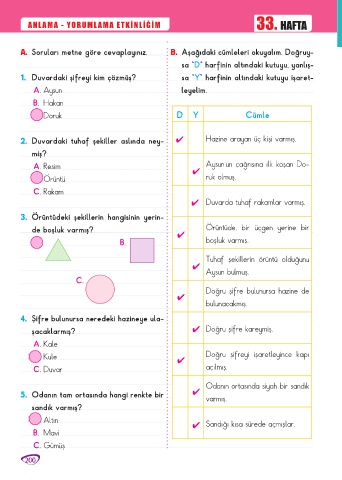 ANLAMA - YORUMLAMA ETKİNLİĞİM
33. HAFTA
A. Soruları metne göre cevaplayınız.
1. Duvardaki şifreyi kim çözmüş?
A. Aysun
B. Hakan
Doruk
2. Duvardaki tuhaf şekiller aslında ney-
miş?
A. Resim
Örüntü
C. Rakam
3. Örüntüdeki şekillerin hangisinin yerin-
de boşluk varmış?
B.
C.
4. Şifre bulunursa neredeki hazineye ula-
şacaklarmış?
A. Kale
Kule
C. Duvar
5. Odanın tam ortasında hangi renkte bir
sandık varmış?
Altın
B. Mavi
C. Gümüş
200
B. Aşağıdaki cümleleri okuyalım. Doğruy-
sa "D" harfinin altındaki kutuyu, yanlış-
sa "Y" harfinin altındaki kutuyu işaret-
leyelim.
D Y Cümle
✓ Hazine arayan üç kişi varmış.
Aysun'un çağrısına ilk koşan Do-
✓ ruk olmuş.
✓ Duvarda tuhaf rakamlar varmış.
Örüntüde, bir üçgen yerine bir
✓ boşluk varmış.
Tuhaf şekillerin örüntü olduğunu
✓ Aysun bulmuş.
Doğru şifre bulunursa hazine de
✓ bulunacakmış.
✓ Doğru şifre kareymiş.
Doğru şifreyi işaretleyince kapı
✓ açılmış.
Odanın ortasında siyah bir sandık
✓ varmış.
✓ Sandığı kısa sürede açmışlar.